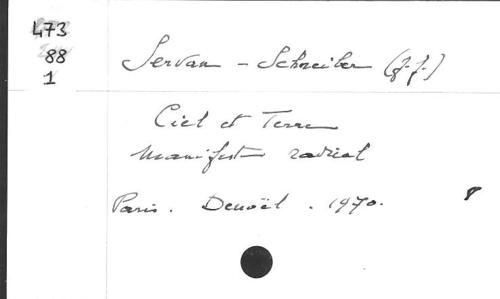 473
88
1
Servan - Schreiber (J.J.)
Ciel et Terre
Manifeste radical
Paris. Denoël. 1970. 8